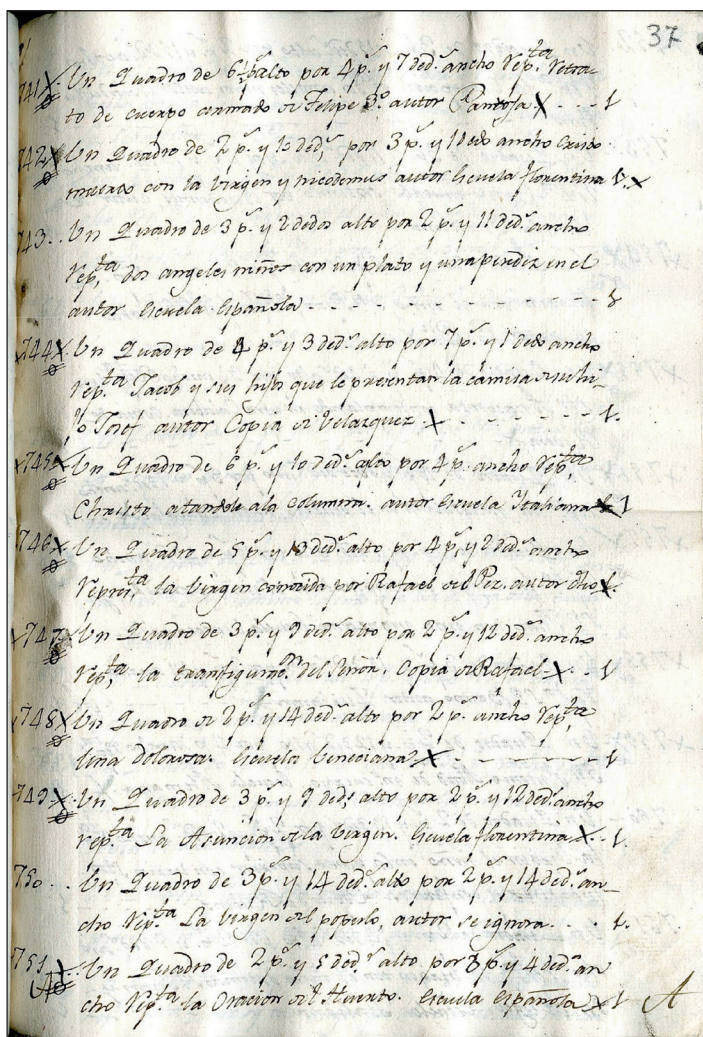 37
741 X Un Quadro de 6½ p.s alto por 4 p.s y 7 ded.s ancho rep.ta retra-
to de cuerpo armado de Felipe 3.º autor Pantoja X - - - 1
742 X Un Quadro de 2 p.s y 10 ded.s por 3 p.s y 1 dedo ancho Cristo
muerto con la Virgen y nicodemus autor Escuela florentina 1. X
743.. Un Quadro de 3 p.s y 2 dedos alto por 2 p.s y 11 ded.s ancho
rep.ta dos angeles niños con un plato y una perdiz en el
autor Escuela Española - - - - - - - - 1
X 744 X. Un Quadro de 4 p.s y 3 ded.s alto por 7 p.s y 1 dedo ancho
rep.ta Jacob y sus hijos que le presentan la camisa de su hi-
jo Josef autor Copia de Velazquez X - - - - - - 1.
X 745 X Un Quadro de 6 p.s y 10 ded.s alto por 4 p.s ancho rep.ta
Christo atandole ala columna. autor Escuela Italiana X 1
746 X Un Quadro de 5 p.s y 13 ded.s alto por 4 p.s y 2 ded.s ancho
repres.ta la Virgen conocida por Rafael del Pez. autor dho X.
X 747 X Un Quadro de 3 p.s y 9 ded.s alto por 2 p.s y 12 ded.s ancho
rep.ta la transfigurac.on del Señor, Copia de Rafael X - 1
748 X Un Quadro de 2 p.s y 14 ded.s alto por 2 p.s ancho rep.ta
Una dolorosa. Escuela Veneciana X - - - - - - 1
749 X. Un Quadro de 3 p.s y 9 ded.s alto por 2 p.s y 12 ded.s ancho
rep.ta La Asuncion de la Virgen. Escuela florentina X - 1.
750.. Un Quadro de 3 p.s y 14 ded.s alto por 2 p.s y 14 ded.s an-
cho rep.ta La Virgen del populo, autor se ignora. . . 1.
751 X. Un Quadro de 2 p.s y 5 ded.s alto por 3 p.s y 4 ded.s an
cho rep.ta la Oracion del Huerto. Escuela Española X 1 A